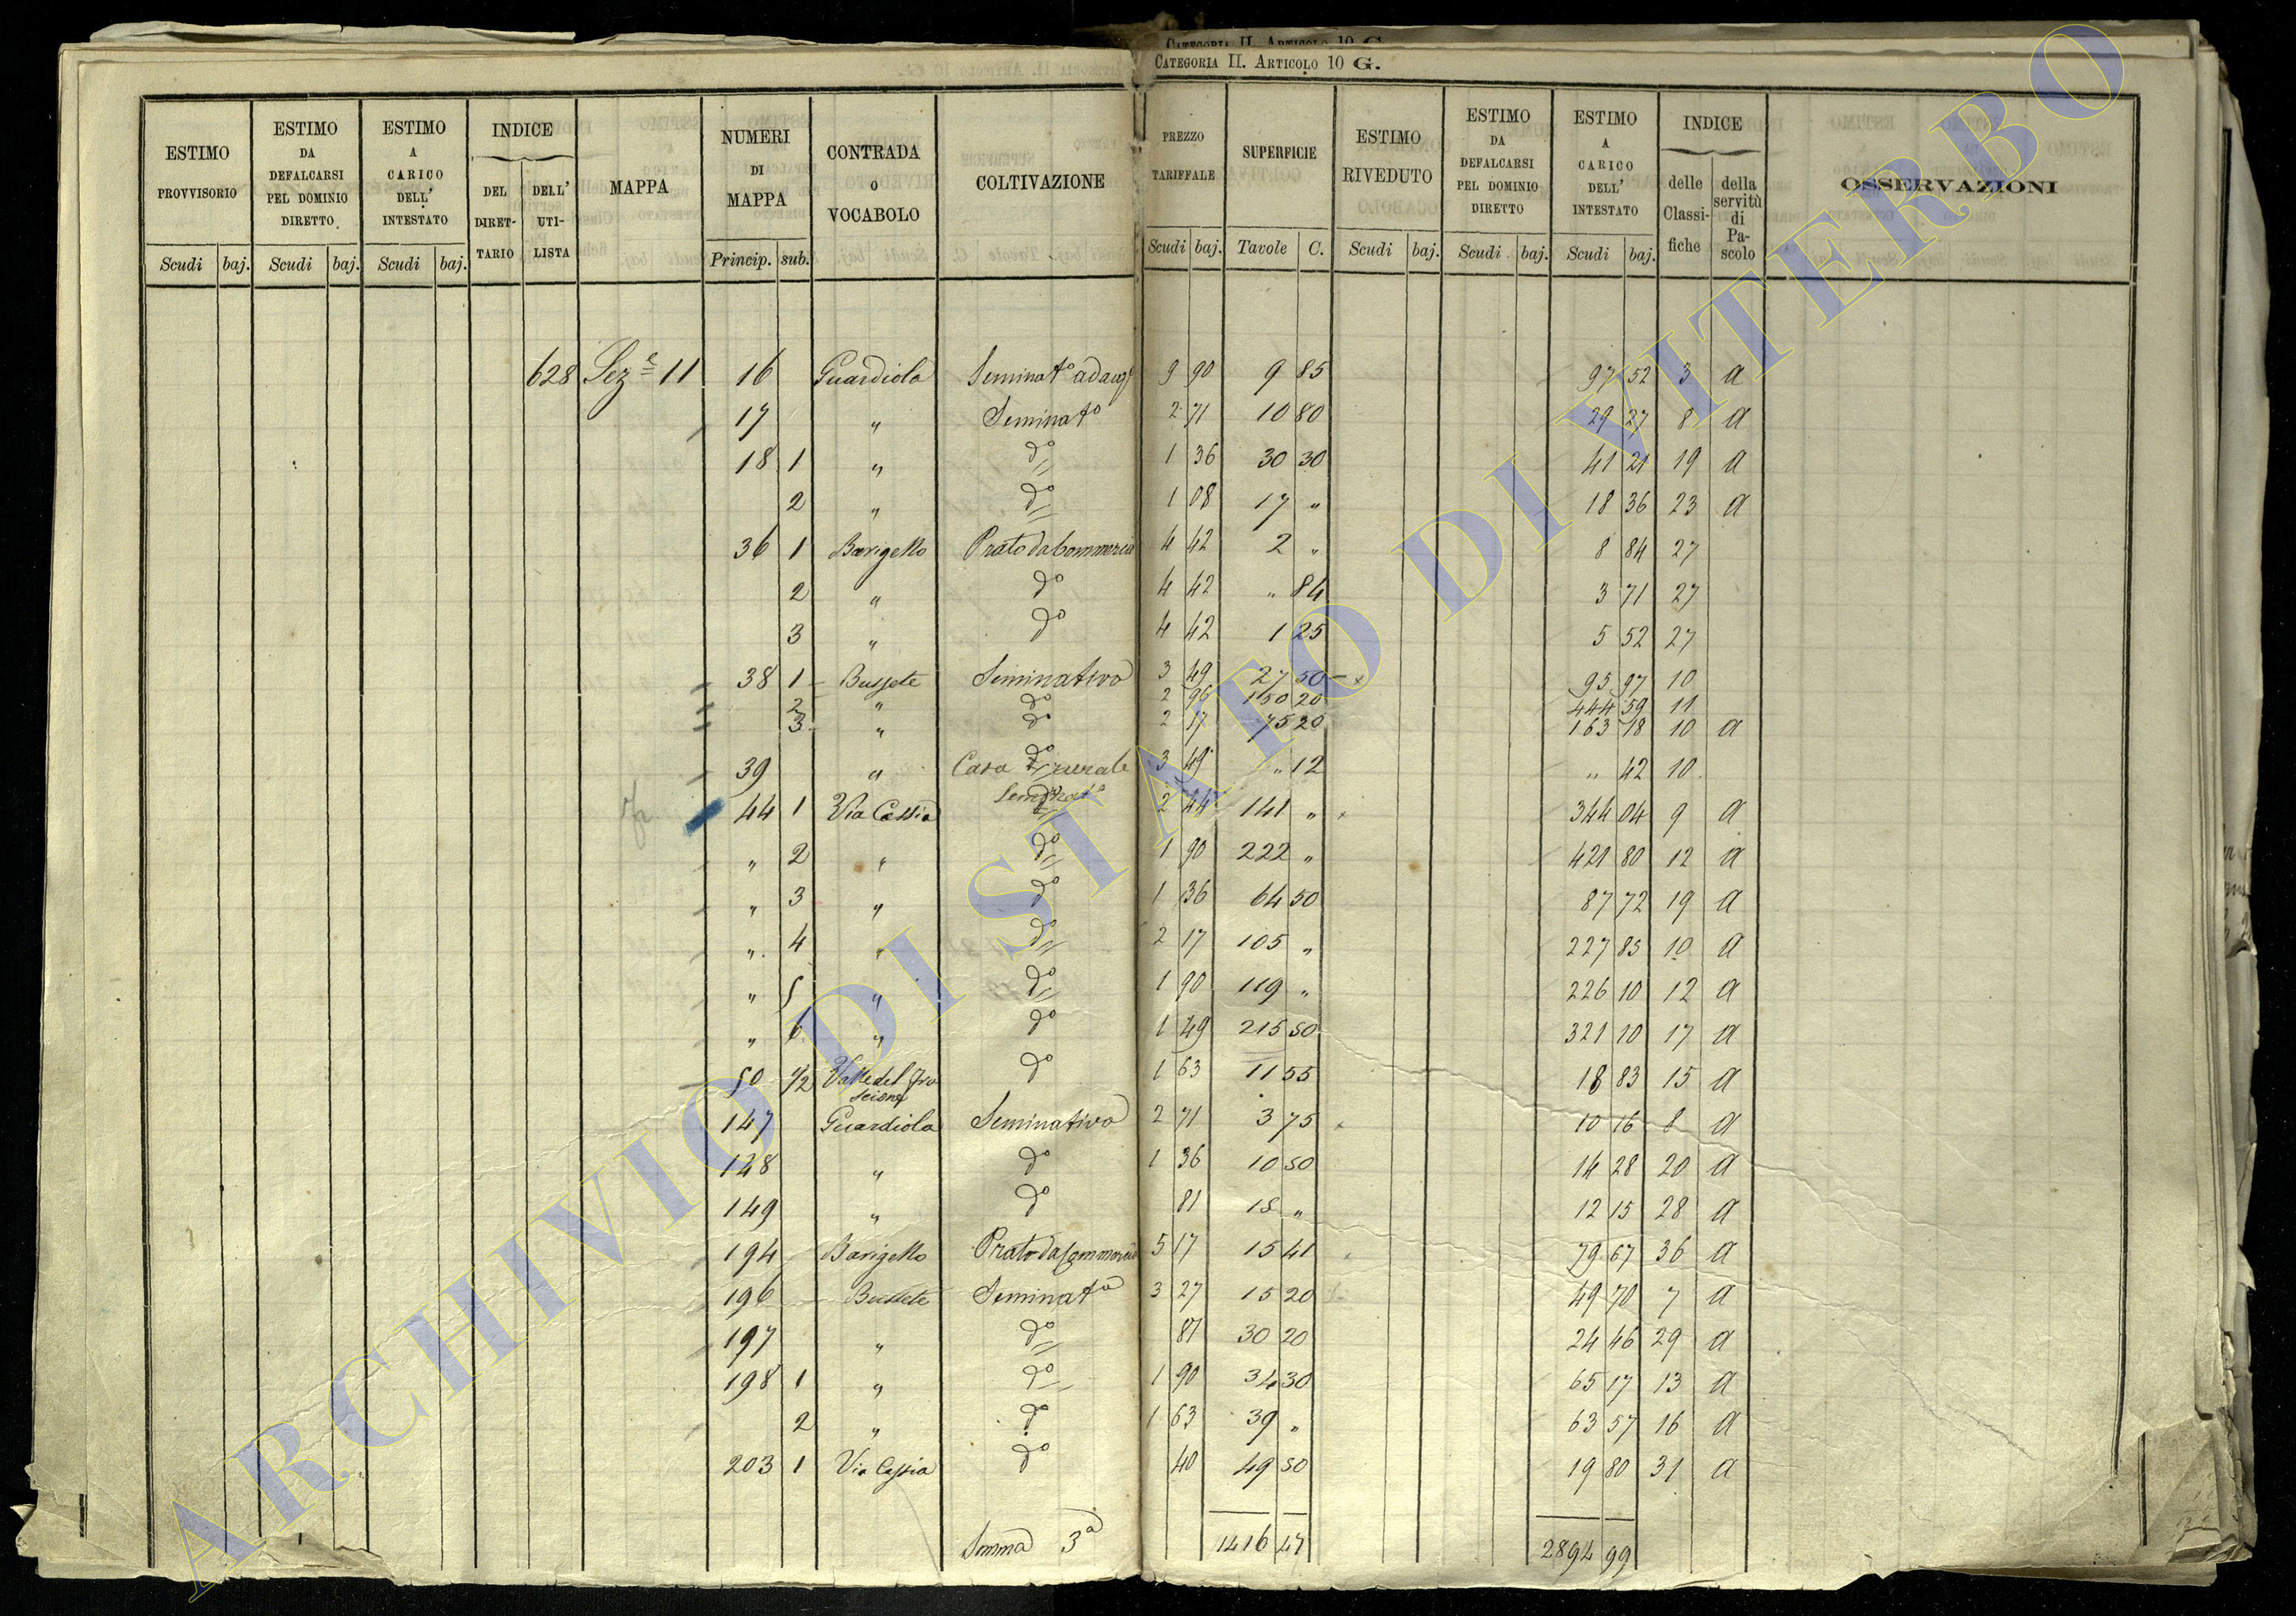 CATEGORIA II. ARTICOLO 10 G.
CATEGORIA II. ARTICOLO 10 G.
ESTIMO PROVVISORIO | ESTIMO DA DEFALCARSI PEL DOMINIO DIRETTO | ESTIMO A CARICO DELL' INTESTATO | INDICE DEL DIRETTARIO | DELL' UTILISTA | MAPPA | NUMERI DI MAPPA | CONTRADA O VOCABOLO | COLTIVAZIONE | PREZZO TARIFFALE | SUPERFICIE | ESTIMO RIVEDUTO | ESTIMO DA DEFALCARSI PEL DOMINIO DIRETTO | ESTIMO A CARICO DELL' INTESTATO | INDICE delle Classifiche | della servitù di Pascolo | OSSERVAZIONI
Scudi baj. Scudi baj. Scudi baj. Princip. sub. Scudi baj. Tavole C. Scudi baj. Scudi baj. Scudi baj.
628 Sez.e 11 16 Guardiola Seminat.o ad 9 90 9 85 97 52 3 a
17 " Seminat.o 2 71 10 80 29 27 8 a
18 1 " d.o 1 36 30 30 41 21 19 a
2 " d.o 1 08 17 " 18 36 23 a
36 1 Barigello Prato da Commercio 4 42 2 " 8 84 27
2 " d.o 4 42 " 84 3 71 27
3 " d.o 4 42 1 25 5 52 27
38 1 Bussete Seminativo 3 49 27 50 95 97 10
2 " d.o 2 96 150 20 444 59 11
3 " d.o 2 17 75 20 163 18 10 a
39 " Casa rurale 3 49 " 12 " 42 10
44 1 Via Cassia Seminat.o 2 44 141 " 344 04 9 a
" 2 " d.o 1 90 222 " 421 80 12 a
" 3 " d.o 1 36 64 50 87 72 19 a
" 4 " d.o 2 17 105 " 227 85 10 a
" 5 " d.o 1 90 119 " 226 10 12 a
" 6 " d.o 1 49 215 50 321 10 17 a
50 1/2 Valle del d.o 1 63 11 55 18 83 15 a
147 Guardiola Seminativo 2 71 3 75 10 16 8 a
148 " d.o 1 36 10 50 14 28 20 a
149 " d.o 81 15 " 12 15 28 a
194 Barigello Prato da Commercio 5 17 15 41 79 67 36 a
196 Bussete Seminat.o 3 27 15 20 49 70 7 a
197 " d.o 81 30 20 24 46 29 a
198 1 " d.o 1 90 34 30 65 17 13 a
2 " d.o 1 63 39 " 63 57 16 a
203 1 Via Cassia d.o 40 49 50 19 80 31 a
Somma 3a 1416 47 2894 99
ARCHIVIO DI STATO DI VITERBO